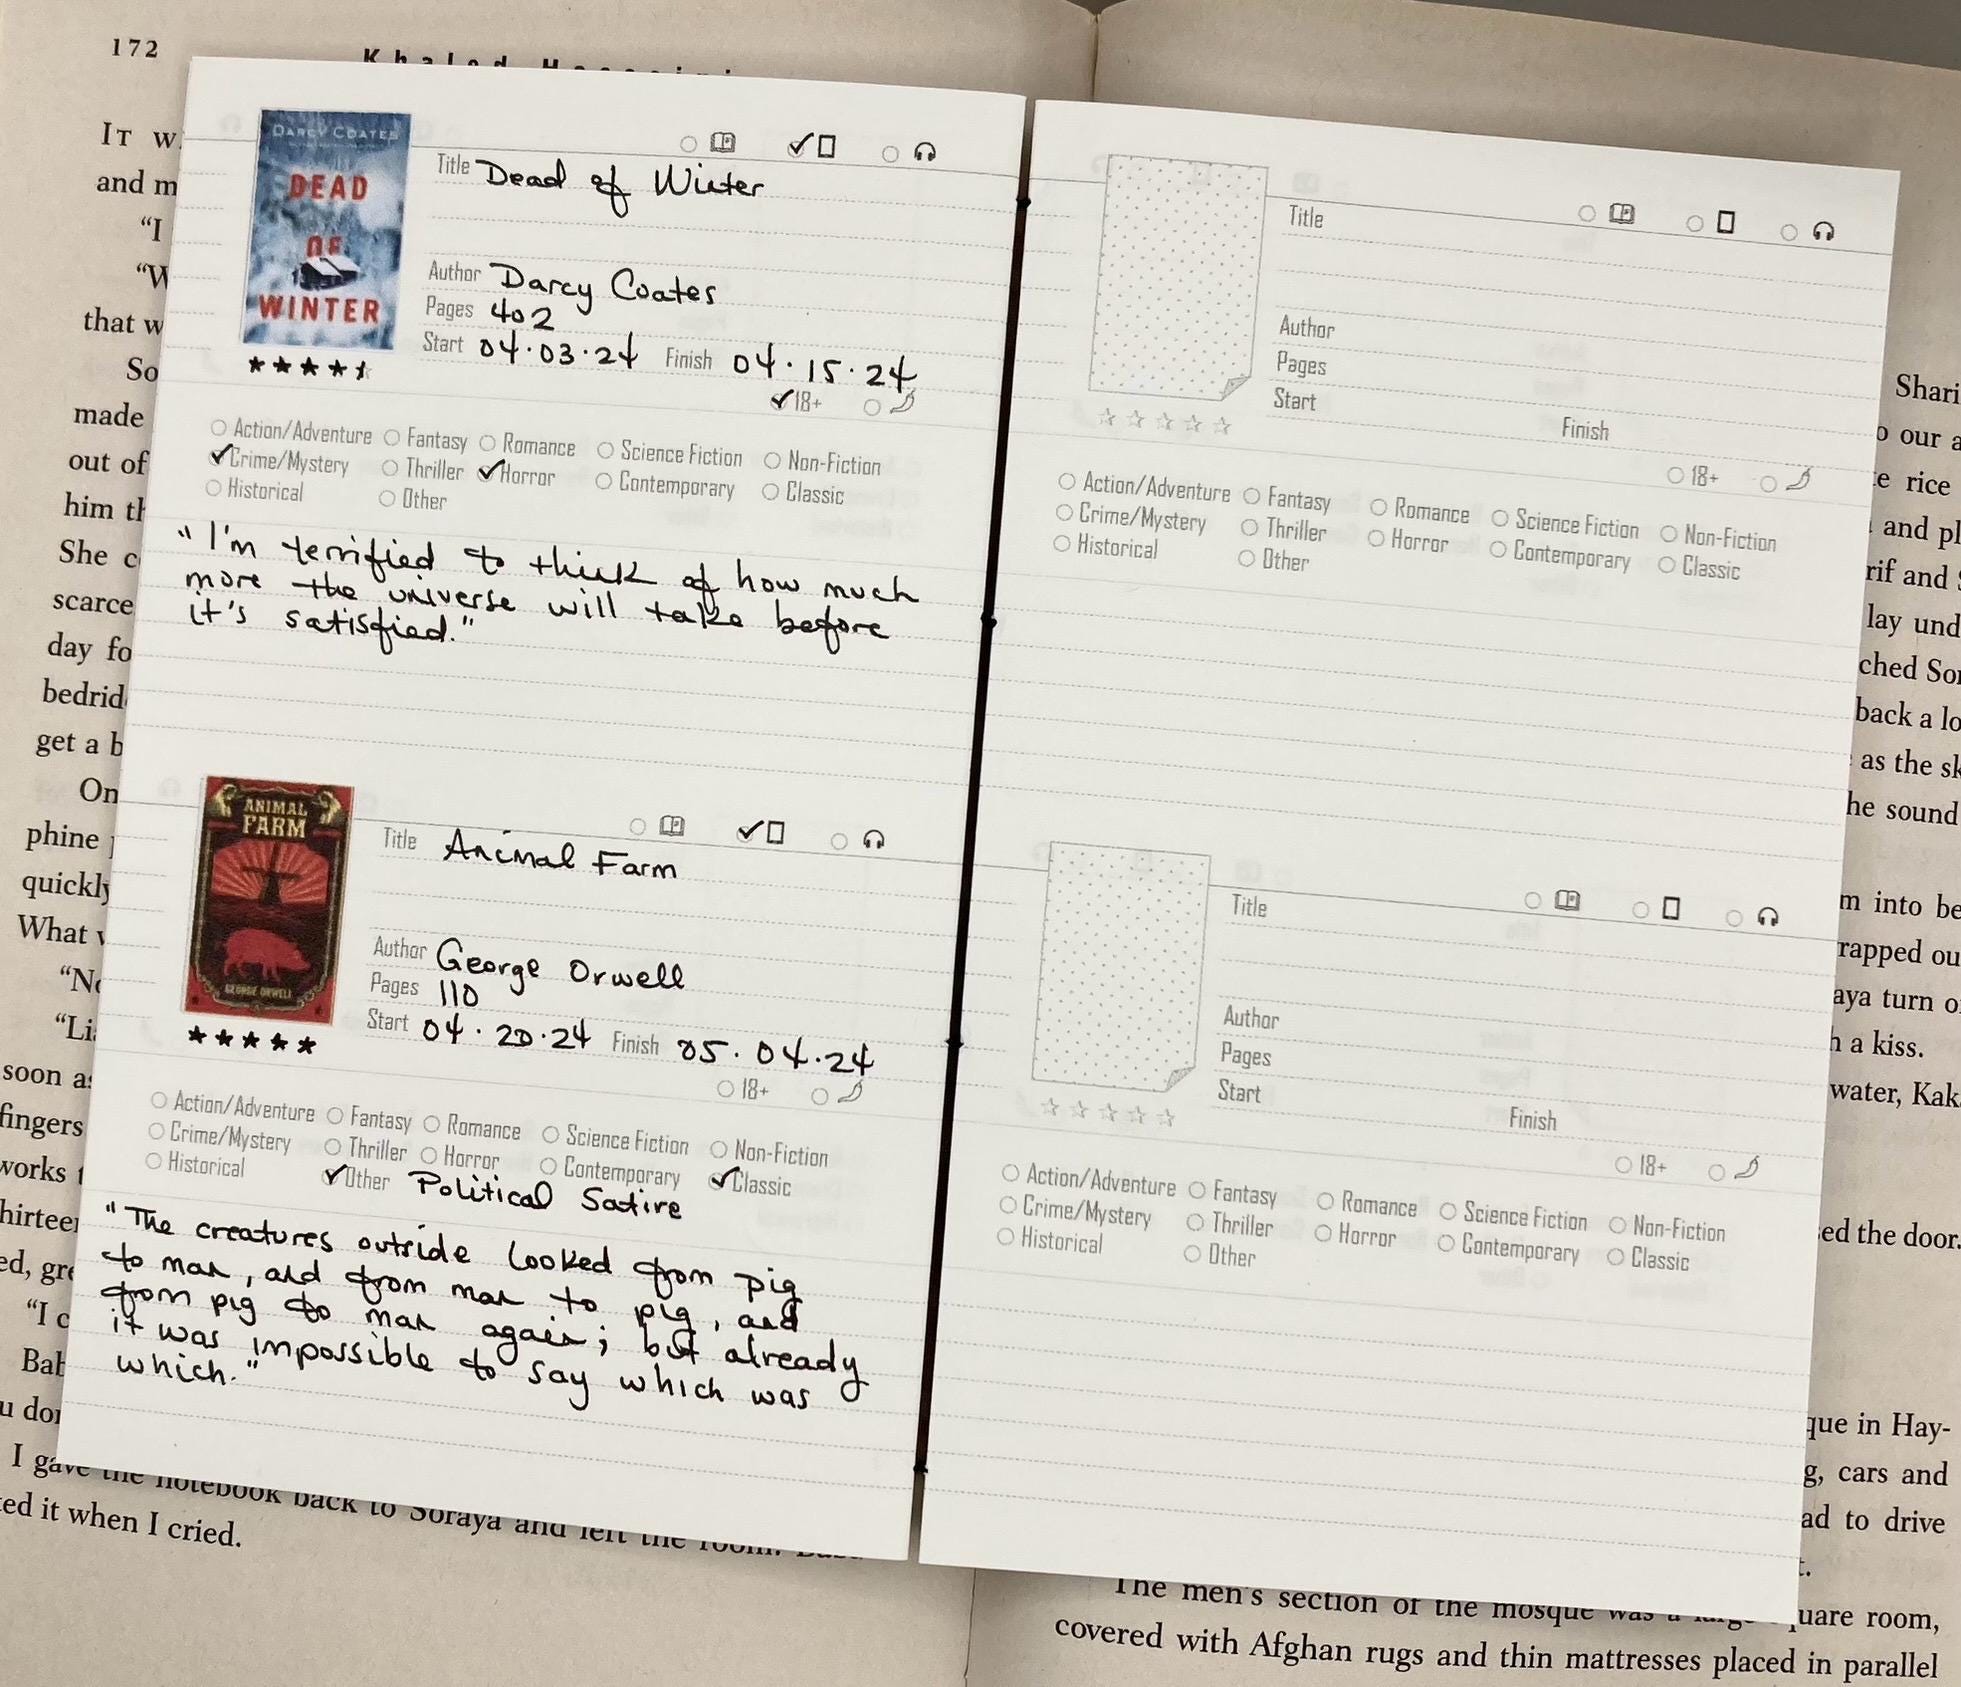 172
IT W
and m
"I
"W
that w
So
made
out of
him th
She c
scarce
day fo
bedrid
get a b
On
phine
quickly
What
"No
"Li
soon as
fingers
works
hirteen
ed, gre
"I c
Bab
u don
I gave the notebook back to Soraya and left the room.
ted it when I cried.
DARCY COATES
DEAD
OF
WINTER
Title Dead of Winter
Author Darcy Coates
Pages 402
Start 04.03.24 Finish 04.15.24
18+
Action/Adventure Fantasy Romance Science Fiction Non-Fiction
Crime/Mystery Thriller Horror Contemporary Classic
Historical Other
"I'm terrified to think of how much
more the universe will take before
it's satisfied."
ANIMAL
FARM
GEORGE ORWELL
Title Animal Farm
Author George Orwell
Pages 110
Start 04.20.24 Finish 05.04.24
18+
Action/Adventure Fantasy Romance Science Fiction Non-Fiction
Crime/Mystery Thriller Horror Contemporary Classic
Historical Other Political Satire
"The creatures outside looked from pig
to man, and from man to pig, and
from pig to man again; but already
it was impossible to say which was
which."
Title
Author
Pages
Start
Finish
18+
Action/Adventure Fantasy Romance Science Fiction Non-Fiction
Crime/Mystery Thriller Horror Contemporary Classic
Historical Other
Title
Author
Pages
Start
Finish
18+
Action/Adventure Fantasy Romance Science Fiction Non-Fiction
Crime/Mystery Thriller Horror Contemporary Classic
Historical Other
Shari
o our a
e rice
and pl
rif and S
lay und
ched Sor
back a lo
as the sk
he sound
m into be
rapped ou
aya turn o
h a kiss.
water, Kak
ed the door.
que in Hay-
g, cars and
ad to drive
t.
The men's section of the mosque was a large square room,
covered with Afghan rugs and thin mattresses placed in parallel